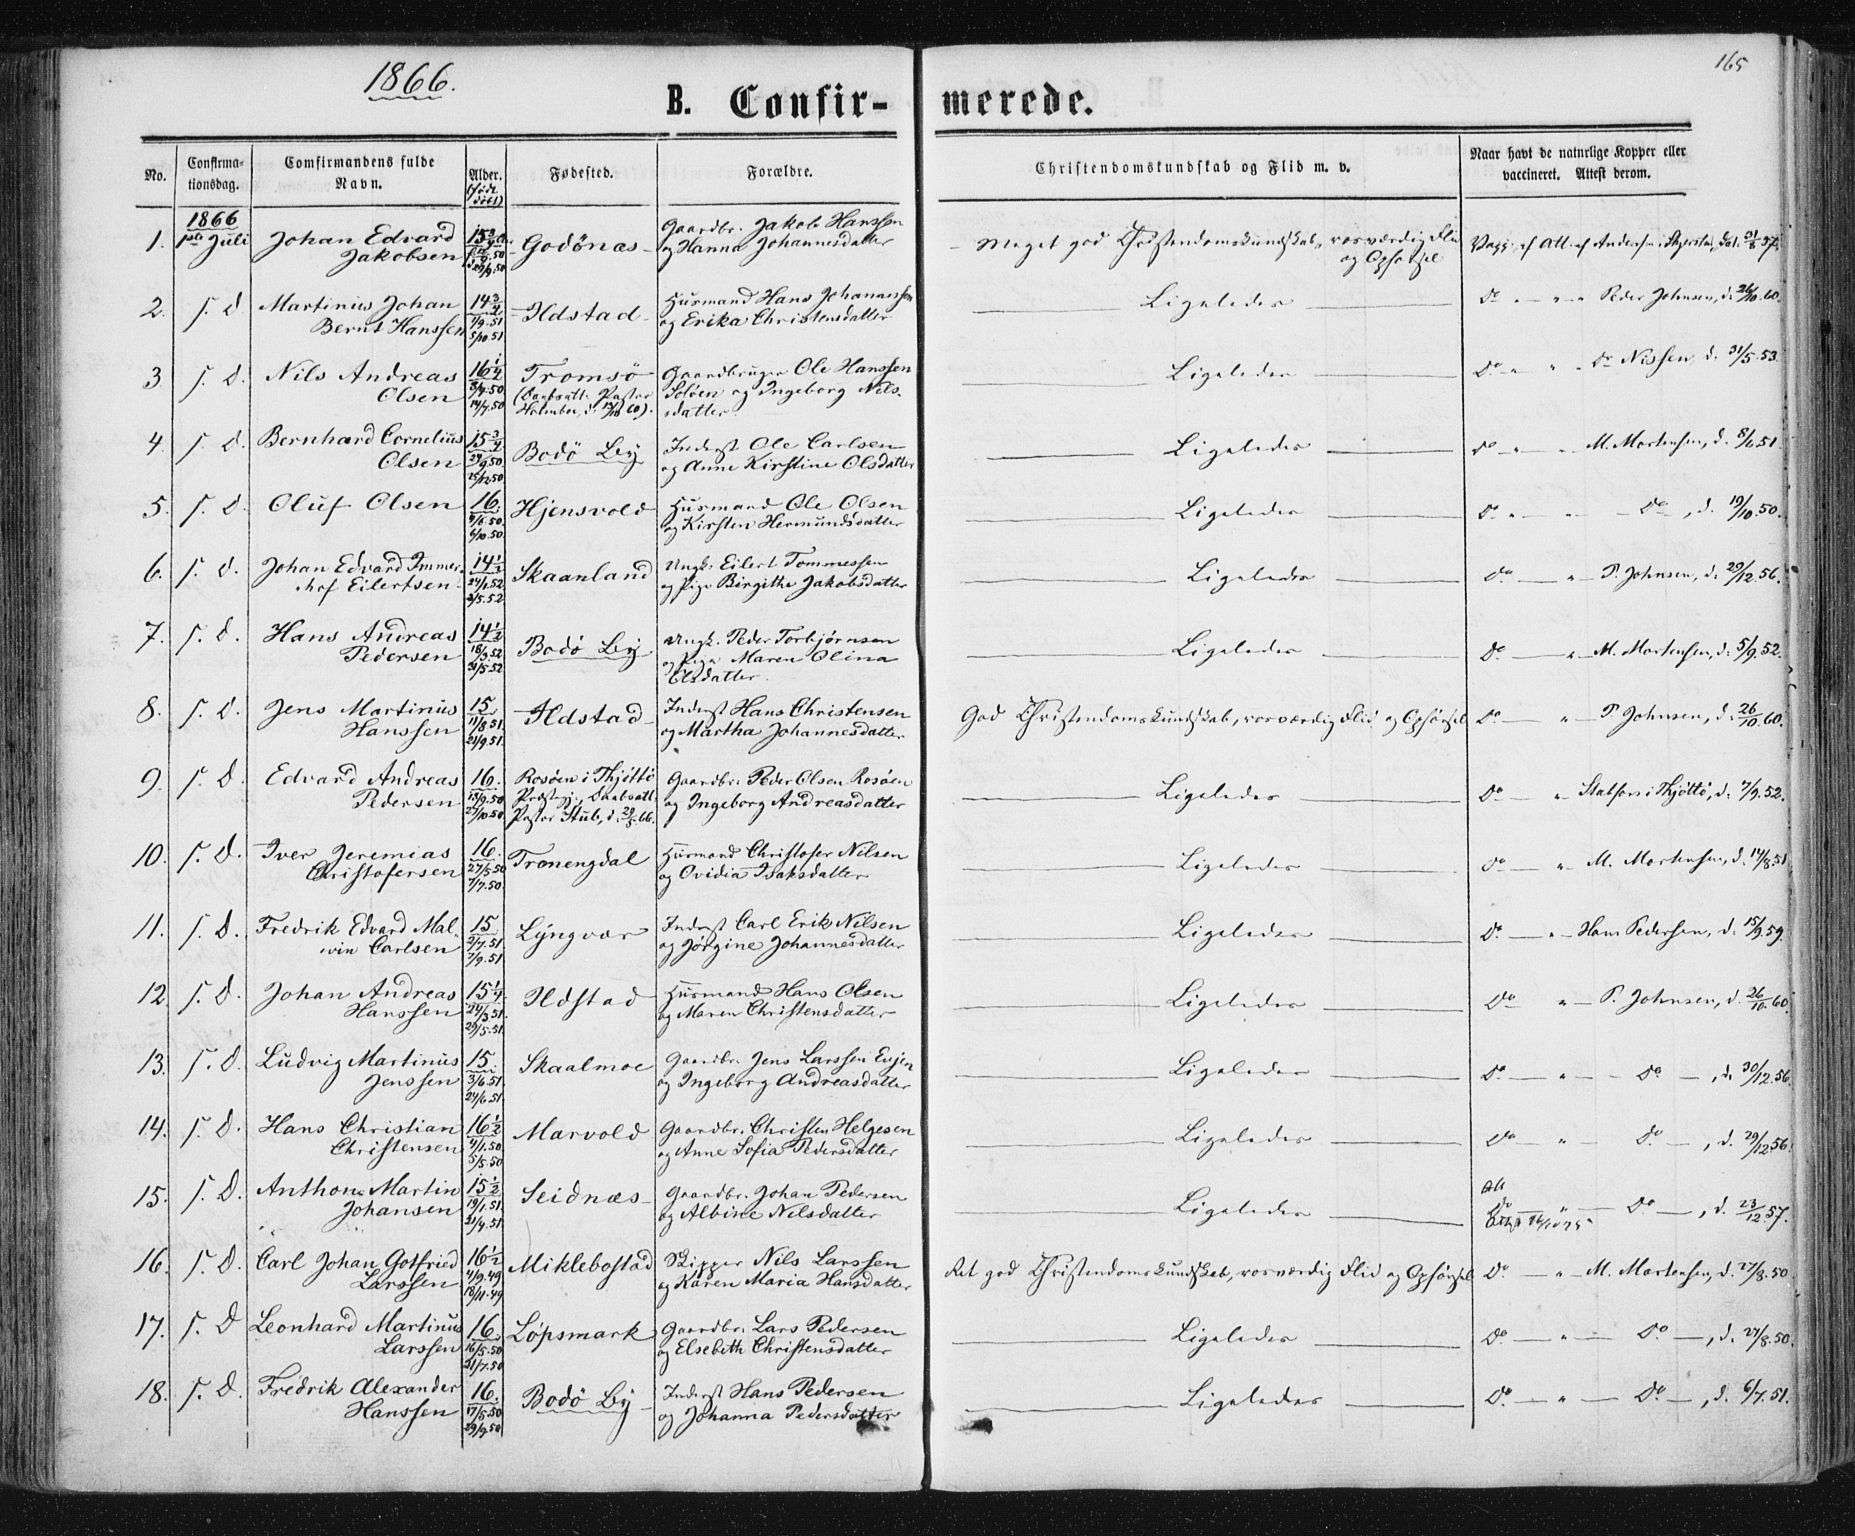 1866.
165
B. Confir- merede.
No. Confirma- tionsdag. Comfirmandens fulde Navn. Alder. (født døbt) Fødested. Forældre. Christendomskundskab og Flid m. v. Naar havt de naturlige Kopper eller vaccineret. Attest derom.
1866
1. 1ste Juli Johan Edvard Jakobsen 15 3/4 Godønæs Gaardbr. Jakob Hanssen og Hanna Johannesdatter Meget god Christendomskundskab, rosværdig Flid og Opførsel Vacc. ef. Att. af Andersen
2. s. d. Martinius Johan Bernt Hanssen 14 3/4 7/9.51 5/10.51 Ildstad Husmand Hans Johannssen og Erika Christensdatter Ligeledes Do " " " Peder Johnsen, d. 26/10.60.
3 s. d. Nils Andreas Olsen 16 1/2 3/4.50 14/7.50 Tromsø (Daabsatt. Pastor Holmboe, d. 60). Gaardbruger Ole Hanssen Soløen og Ingeborg Nils- datter Ligeledes Do " " Dr Nissen d. 31/5.53
4 s. d. Bernhard Cornelius Olsen 15 3/4 29/9.50 25/12.50 Bodø By Inderst Ole Carlsen og Anne Kirstine Olsdatter Ligeledes Do " M. Mortensen, d. 8/6.51.
5. s. d. Oluf Olsen 16. 4/6.50 6/10.50 Hjensvold Husmand Ole Olsen og Kirsten Hermundsdatter Ligeledes Do " Do, d. 19/10.50.
6. s. d. Johan Edvard Immer- hof Eilertsen 14 1/2 24/1.52 2/5.52 Skaanland Ungk. Eilert Tommessen og Pige Birgithe Jakobsdatter Ligeledes Do " P. Johnsen, d. 29/12.56.
7. s. d. Hans Andreas Pedersen 14 1/2 18/3.52 21/5.52 Bodø By Ungk. Peder Torbjørnsen og Pige Maren Olina Olsdatter Ligeledes Do " M. Mortensen, d. 5/9.52.
8. s. d. Jens Martinus Hanssen 15 11/8.51 21/9.51. Ildstad Inderst Hans Christensen og Martha Johannesdatter God Christendomskundskab, rosværdig Flid og Opførsel Do " P. Johnsen, d. 26/10.60.
9. s. d. Edvard Andreas Pedersen 16. 15/9.50 27/10.50 Rosøen i Thjøttø Præstegj., Daabsatt. Pastor Stub, d. 66. Gaardbr. Peder Olsen Rosøen og Ingeborg Andreasdatter Ligeledes Do " i Thjøttø, d. 7/9.52.
10. s. d. Iver Jeremias Christofersen 16. 27/5.50 7/7.50 Tronengdal Husmand Christofer Nilsen og Ovidia Isaksdatter Ligeledes Do " M. Mortensen, d. 17/8.51
11. s. d. Fredrik Edvard Mal- win Carlsen 15 2/7.51 7/9.51. Lyngvær Inderst Carl Erik Nilsen og Jørgine Johannesdatter Ligeledes Do " Hans Pedersen, d. 15/9.59.
12. s. d. Johan Andreas Hanssen 15 1/4 24/3.51. 29/5.51. Ildstad Husmand Hans Olsen og Maren Christensdatter Ligeledes Do " P. Johnsen, d. 26/10.60.
13. s. d. Ludvig Martinus Jenssen 15. 3/6.51. 24/6.51. Skaalmoe Gaardbr. Jens Larssen Evjen og Ingeborg Andreasdatter Ligeledes Do " Do, d. 30/12.56.
14. s. d. Hans Christian Christensen 16 1/2 4/1.50 5/5.50 Marvold Gaardbr. Christen Helgesen og Anne Sofia Pedersdatter Ligeledes Do " Do, d. 29/12.56.
15. s. d. Anthon Martin Johansen 15 1/2 19/1.51. 21/4.51. Seidnæs Gaardbr. Johan Pedersen og Albine Nilsdatter Ligeledes Do " Do, d. 23/12.57.
16. s. d. Carl Johan Gotfried Larssen 16 1/2 4/9.49 18/11.49 Miklebostad Skipper Nils Larssen og Karen Maria Hansdatter Ret god Christendomskundskab, rosværdig Flid og Opførsel Do " M. Mortensen, d. 27/8.50.
17. s. d Leonhard Martinus Larssen 16. 16/5.50 21/7.50 Løpsmark Gaardbr. Lars Pedersen og Elsebeth Christensdatter Ligeledes Do " Do, d. 27/8.50.
18. s. d. Fredrik Alexander Hanssen 16. 17/5.50 29/9.50 Bodø By Inderst Hans Pedersen og Johanna Pedersdatter Ligeledes Do " Do, d. 6/7.51.